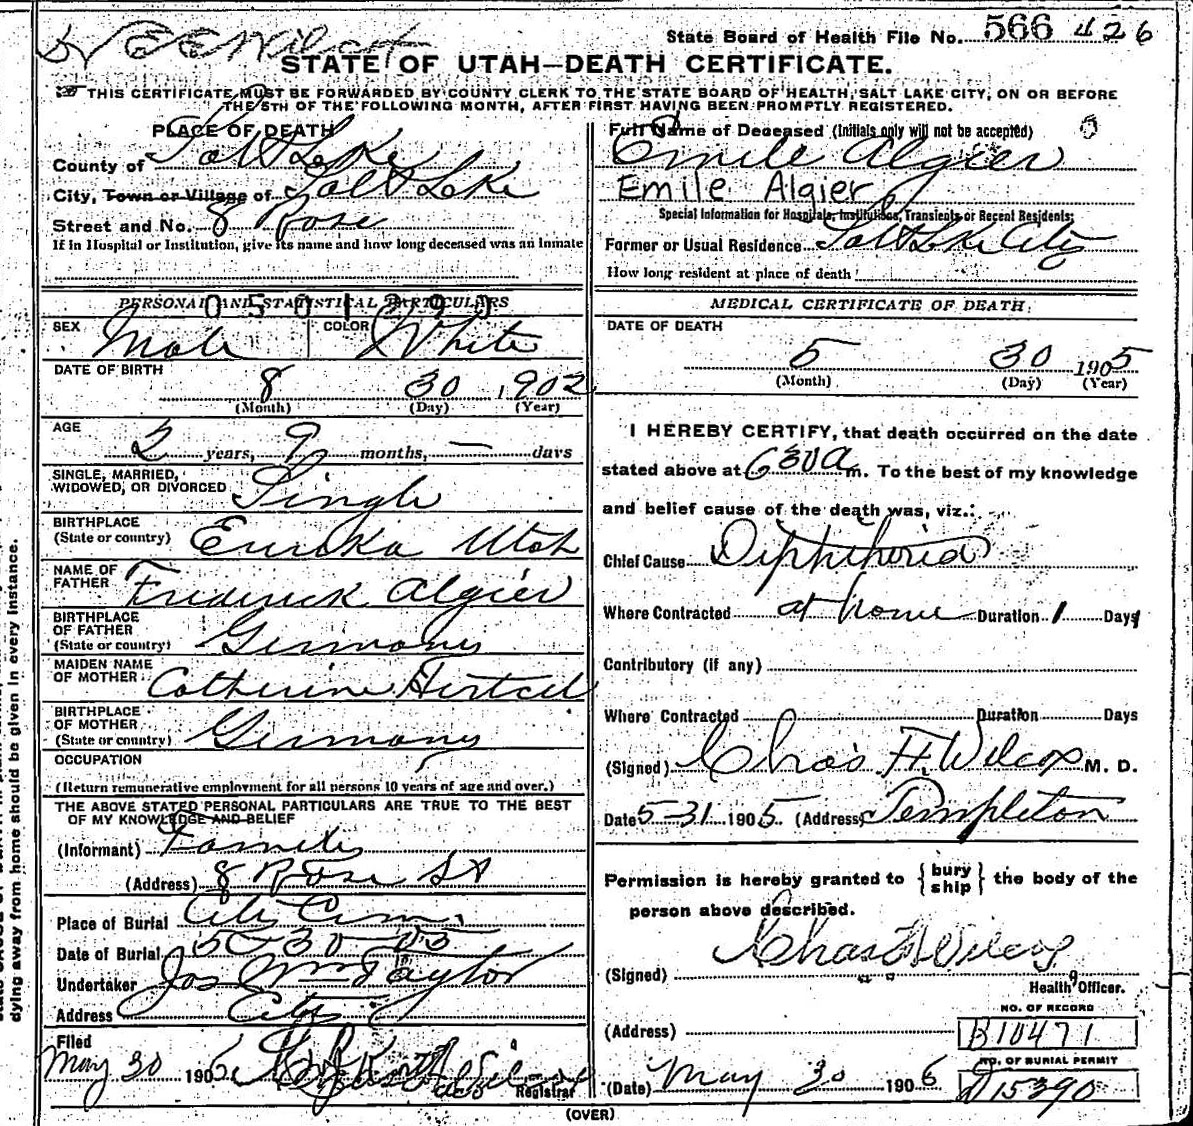 State Board of Health File No. 566 426
STATE OF UTAH—DEATH CERTIFICATE.
THIS CERTIFICATE MUST BE FORWARDED BY COUNTY CLERK TO THE STATE BOARD OF HEALTH, SALT LAKE CITY, ON OR BEFORE
THE 5TH OF THE FOLLOWING MONTH, AFTER FIRST HAVING BEEN PROMPTLY REGISTERED.
PLACE OF DEATH
County of Salt Lake
City, Town or Village of Salt Lake
Street and No. 8 Rose
If in Hospital or Institution, give its name and how long deceased was an inmate
PERSONAL AND STATISTICAL PARTICULARS
SEX Male COLOR White
DATE OF BIRTH
8 30 1902
(Month) (Day) (Year)
AGE
2 years, 9 months, — days
SINGLE, MARRIED,
WIDOWED, OR DIVORCED Single
BIRTHPLACE
(State or country) Eureka Utah
NAME OF
FATHER Frederick Algier
BIRTHPLACE
OF FATHER
(State or country) Germany
MAIDEN NAME
OF MOTHER Catherine Hertzell
BIRTHPLACE
OF MOTHER
(State or country) Germany
OCCUPATION
(Return remunerative employment for all persons 10 years of age and over.)
THE ABOVE STATED PERSONAL PARTICULARS ARE TRUE TO THE BEST
OF MY KNOWLEDGE AND BELIEF
(Informant) Family
(Address) 8 Rose St
Place of Burial City Cem.
Date of Burial 5-30-05
Undertaker Jos Wm Taylor
Address City
Filed
May 30 1905
Registrar
Full Name of Deceased (Initials only will not be accepted)
Emile Algier
Emile Algier
Special Information for Hospitals, Institutions, Transients or Recent Residents:
Former or Usual Residence Salt Lake City
How long resident at place of death
MEDICAL CERTIFICATE OF DEATH
DATE OF DEATH
5 30 1905
(Month) (Day) (Year)
I HEREBY CERTIFY, that death occurred on the date
stated above at 6 30 a m. To the best of my knowledge
and belief cause of the death was, viz.:
Chief Cause Diphtheria
Where Contracted at home Duration 1 Days
Contributory (if any)
Where Contracted Duration Days
(Signed) Chas. F. Wilcox M. D.
Date 5-31 1905 (Address) Templeton
Permission is hereby granted to { bury ship } the body of the
person above described.
(Signed) Chas F Wilcox
Health Officer.
NO. OF RECORD
(Address) B10471
NO. OF BURIAL PERMIT
(Date) May 30 1906 D15390
(OVER)
dying away from home should be given in every instance.